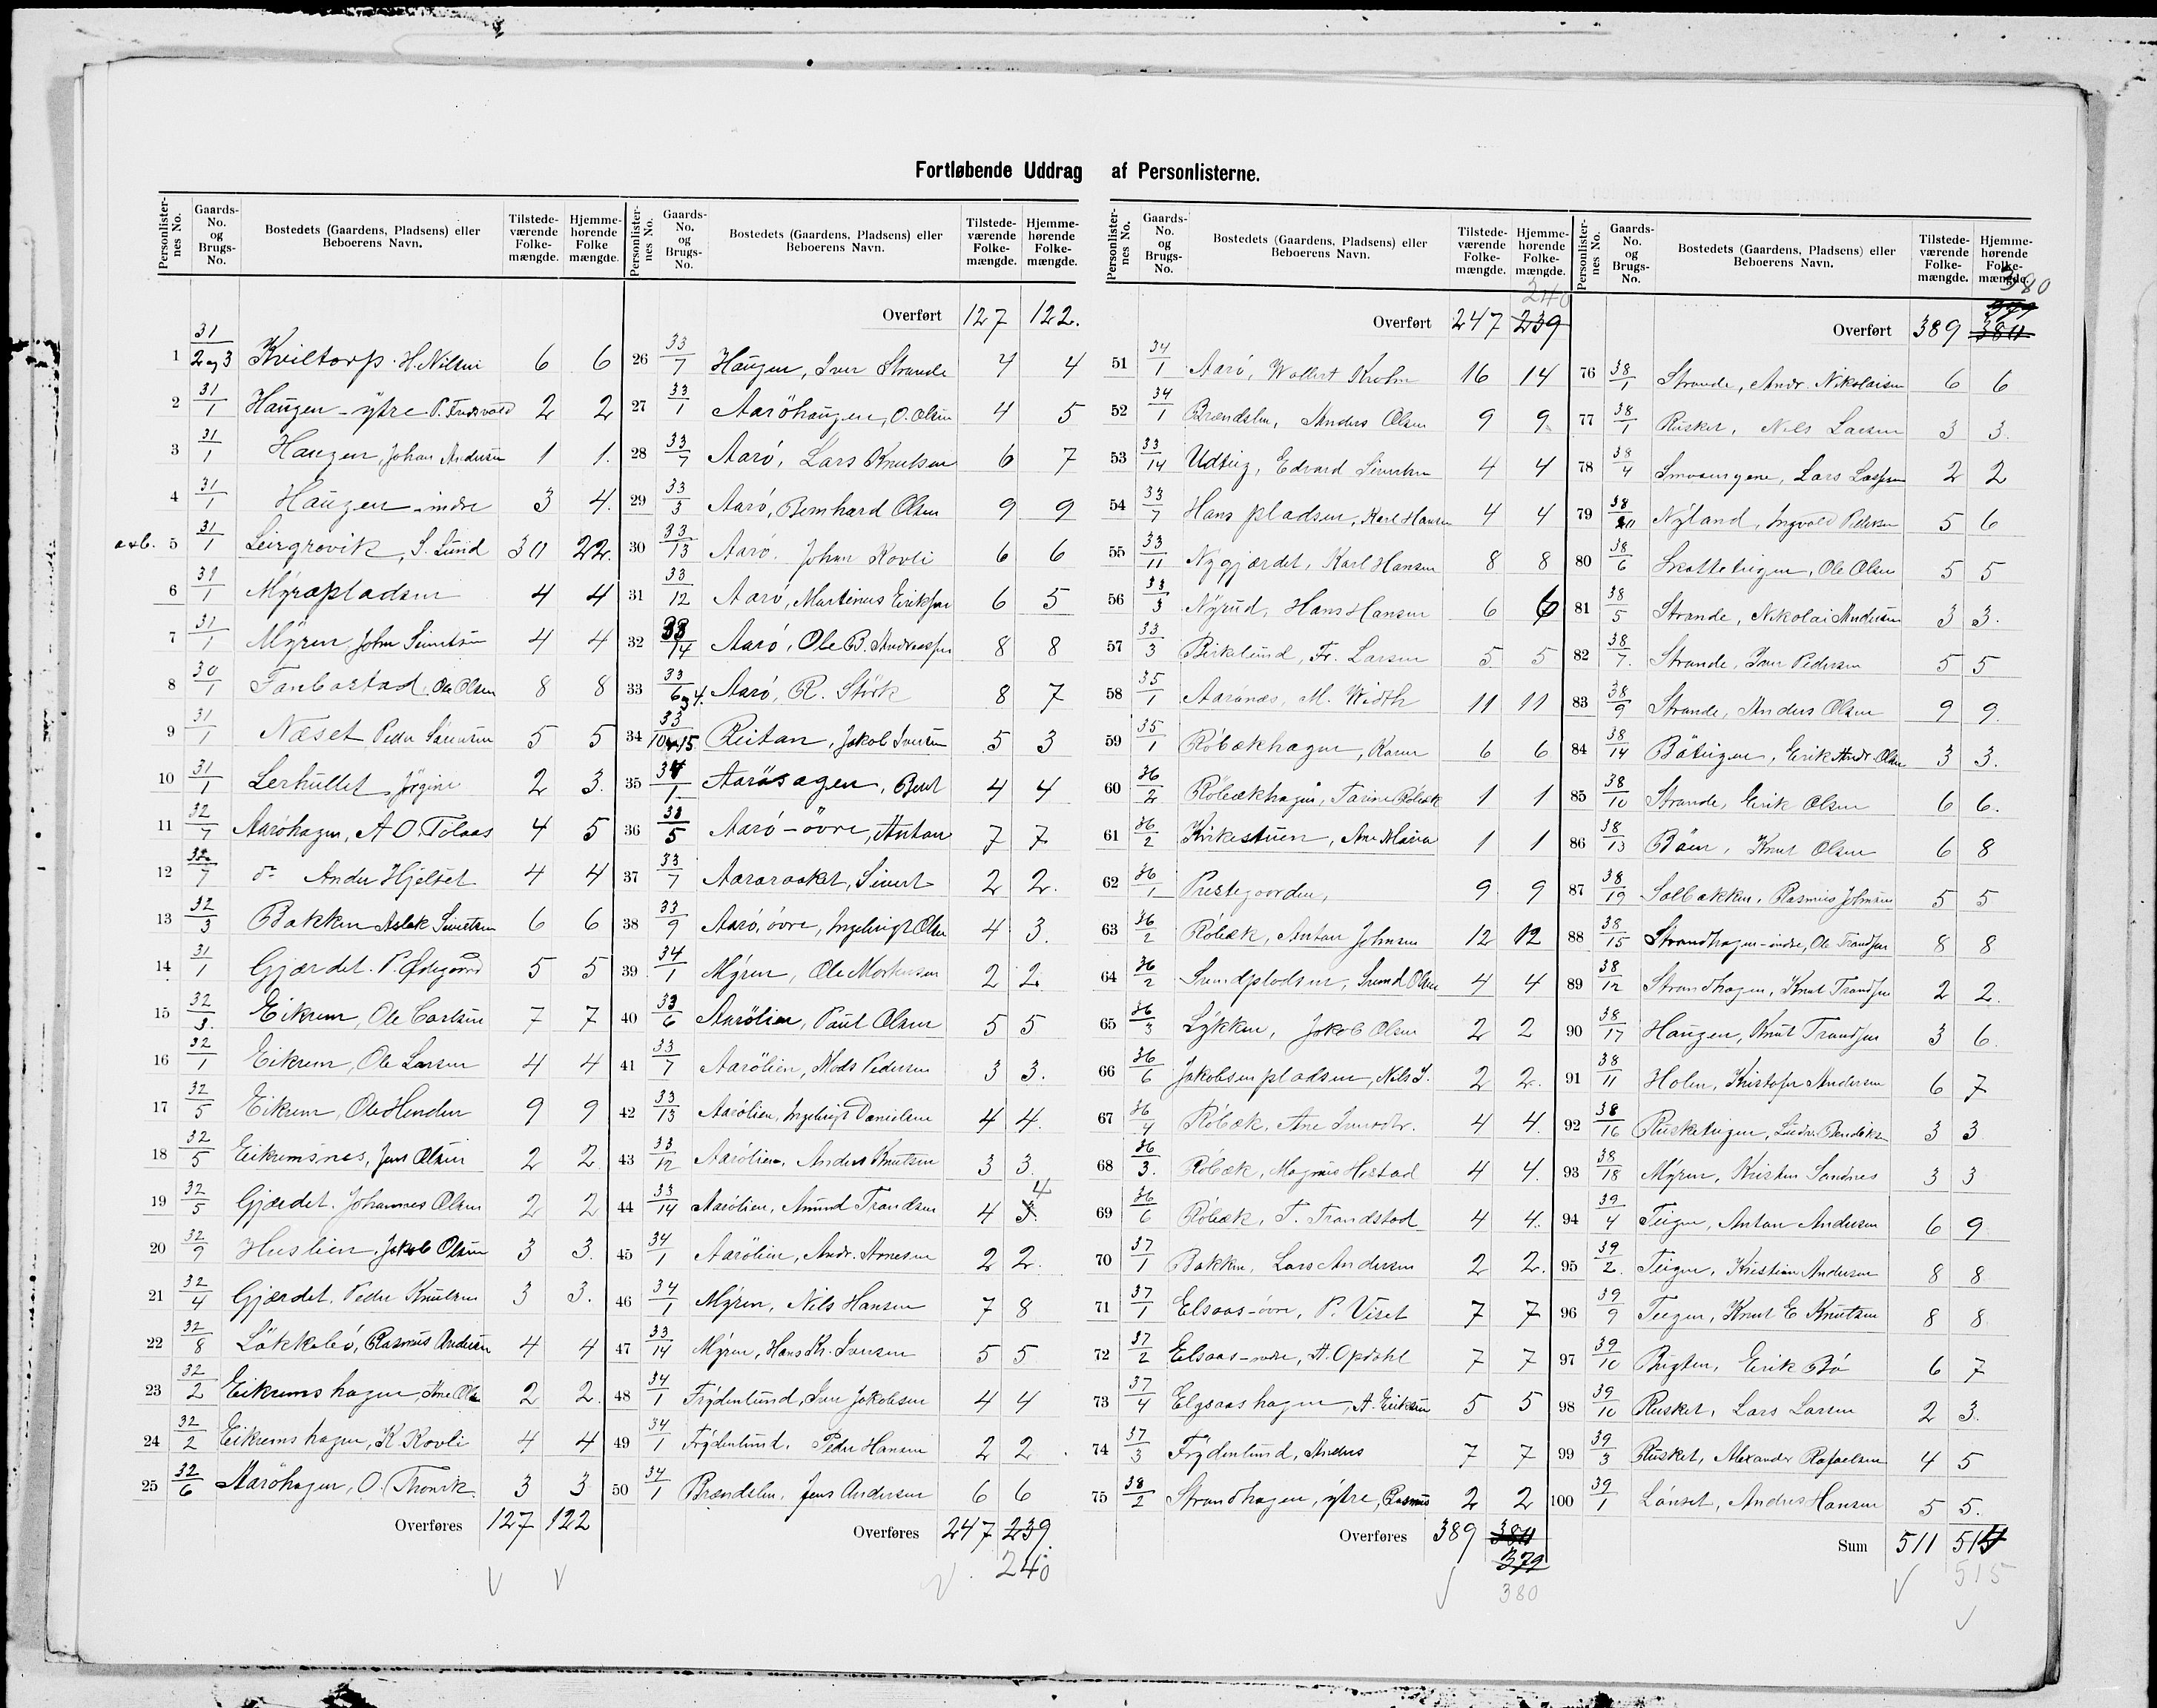 Fortløbende Uddrag af Personlisterne.
Personlisternes No. Gaards-No. og Brugs-No. Bostedets (Gaardens, Pladsens) eller Beboerens Navn. Tilstedeværende Folkemængde. Hjemmehørende Folkemængde.
1 31/2 og 3 Kviltorp. H. Nilsen 6 6
2 31/1 Haugen - ytre P. 2 2
3 31/1 Haugen, Johan Andersen 1 1.
4 31/1 Haugen - indre 3 4.
a+b. 5 31/1 Leirgrovik, S. Lund 30 22.
6 31/1 Myrapladsen 4 4
7 31/1 Myren, John Sivertsen 4 4
8 30/1 Fanbostad, Ole Olsen 8 8
9 31/1 Næset Peder Sørensen 5 5
10 31/1 Lerhullet, Jørgine 2 3.
11 32/7 Aaröhagen, A O. Tolaas 4 5
12 32/7 do Anders Hjeltet 4 4
13 32/3 Bakken Aslak Sivertsen 6 6
14 31/1 Gjærdet. P. Ødegaard 5 5
15 32/3. Eikrem, Ole Carlsen 7 7
16 32/1 Eikrem, Ole Larsen 4 4
17 32/5 Eikrem, Ole Henden 9 9
18 32/5 Eikremsnes, Jens Olsen 2 2
19 32/5 Gjærdet. Johannes Olsen 2 2
20 32/9 Huslien, Jakob Olsen 3 3.
21 32/4 Gjærdet. Peder Knutsen 3 3.
22 32/8 Lökkebö, Rasmus Andersen 4 4
23 32/2 Eikremshagen, Ane Ols 2 2.
24 32/2 Eikremshagen, K Rovli 4 4
25 32/6 Aaröhagen, O. Thorvik. 3 3
Overføres 127 122
Overført 127 122.
26 33/7 Haugen, Iver Strande 4 4
27 33/1 Aaröhaugen, O. Olsen 4 5
28 33/7 Aarö, Lars Knutsen 6 7
29 33/3 Aarö, Bernhard Olsen 9 9
30 33/13 Aarö. Johan Rovli 6 6
31 33/12 Aarö, Martinus Eriksen 6 5
32 33/14 Aarö, Ole B. Andreassen 8 8
33 33/6 og 4. Aarö, R. Störk 8 7
34 33/10 og 15 Reitan, Jakob Iversen 5 3
35 34/1 Aarösagen, Bent 4 4
36 33/5 Aarö - övre, Anton 7 7
37 33/7 Aararaaket, Sivert 2 2.
38 33/9 Aarö, övre, Ingebrigt Olsen 4 3.
39 34/1 Myren, Ole Mortensen 2 2
40 33/6 Aarölien, Paul Olsen 5 5
41 33/7 Aarölien, Mads Pedersen 3 3.
42 33/13 Aarölien, Ingebrigt Danielsen 4 4.
43 33/12 Aarölien, Anders Knutsen 3 3.
44 33/14 Aarölien, Amund Trondsen 4 3. 4
45 34/1 Aarölien, Andr. Arnesen 2 2.
46 34/1 Myren, Nils Hansen 7 8
47 33/14 Myren, Hans Kr. Iversen 5 5
48 34/1 Frydenlund, Iver Jakobsen 4 4
49 34/1 Frydenlund, Peder Hansen 2 2
50 34/1 Brændslen, Jens Andersen 6 6
Overføres 247 239.
240
Overført 247 239 240
51 34/1 Aarö, Wollert Krohn 16 14
52 34/1 Brændslen, Anders Olsen 9 9
53 33/14 Udstig, Edvard Sivertsen 4 4
54 33/7 Hans pladsen, Karl Hansen 4 4
55 33/11 Nygjærdet, Karl Hansen 8 8
56 33/3 Nyrud, Hans Hansen 6 6
57 33/3 Birkelund, Fr. Larsen 5 5
58 35/1 Aarönæs, M. Width 11 11
59 35/1 Röbækhagen, Karen 6 6
60 36/2 Röbækhagen, Tarine Röbæk 1 1
61 36/2 Kirkestuen, Ane Maria 1 1
62 36/1 Prestegaarden, 9 9
63 36/2 Röbæk, Anton Johnsen 12 12
64 36/2 Svendpladsen, Svend Olsen 4 4
65 36/3 Lykken, Jakob Olsen 2 2
66 36/6 Jakobsenpladsen, Nils J. 2 2.
67 36/4 Röbæk, Ane Iversdtr. 4 4.
68 36/3. Röbæk, Magnus Hostad 4 4.
69 36/6 Röbæk, T. Trondstad 4 4.
70 37/1 Bakken, Lars Andersen 2 2.
71 37/1 Elsaas - övre, P. Viset 7 7
72 37/2 Elsaas - nedre, A. Opdahl 7 7
73 37/4 Elgsaashagen, A. Eriksen 5 5
74 37/3 Frydenlund, Anders 7 7
75 38/2 Strandhagen, ytre, Rasmus 2 2
Overføres 389 380
379
380
Overført 389 380 379 380
76 38/1 Strande, Andr. Nikolaisen 6 6
77 38/1 Rusket, Nils Larsen 3 3.
78 38/4 Smvaugene, Lars Lassen 2 2
79 38/20 Nyland, Ingvald Pedersen 5 6
80 38/6 Skatteteigen, Ole Olsen 5 5
81 38/5 Strande, Nikolai Andersen 3 3.
82 38/7. Strande, Iver Pedersen 5 5
83 38/9 Strande, Anders Olsen 9 9.
84 38/14 Böteigen, Erik Andr. Olsen 3 3.
85 38/10 Strande, Erik Olsen 6 6.
86 38/13 Böen, Knut Olsen 6 8
87 38/19 Solbakken, Rasmus Johnsen 5 5
88 38/15 Strandhagen - indre, Ole Trondsen 8 8
89 38/12 Strandhagen, Knut Trondsen 2 2.
90 38/17 Haugen, Knut Trondsen 3 6.
91 38/11 Holen, Kristofer Andersen 6 7
92 38/16 Rusketeigen, Ludv. Bendiksen 3 3
93 38/18 Myren, Kristen Sandnes 3 3
94 39/4 Teigen, Anton Andersen 6 9
95 39/2. Teigen, Kristian Andersen 8 8
96 39/9 Teigen, Knut E Knutsen 8 8
97 39/10 Bugten, Erik Bö 6 7
98 39/10 Rusket, Lars Larsen 2 3.
99 39/3 Rusket, Alexander Rafaelsen 4 5
100 39/1 Lönset, Anders Hansen 5 5.
Sum 511 514
515